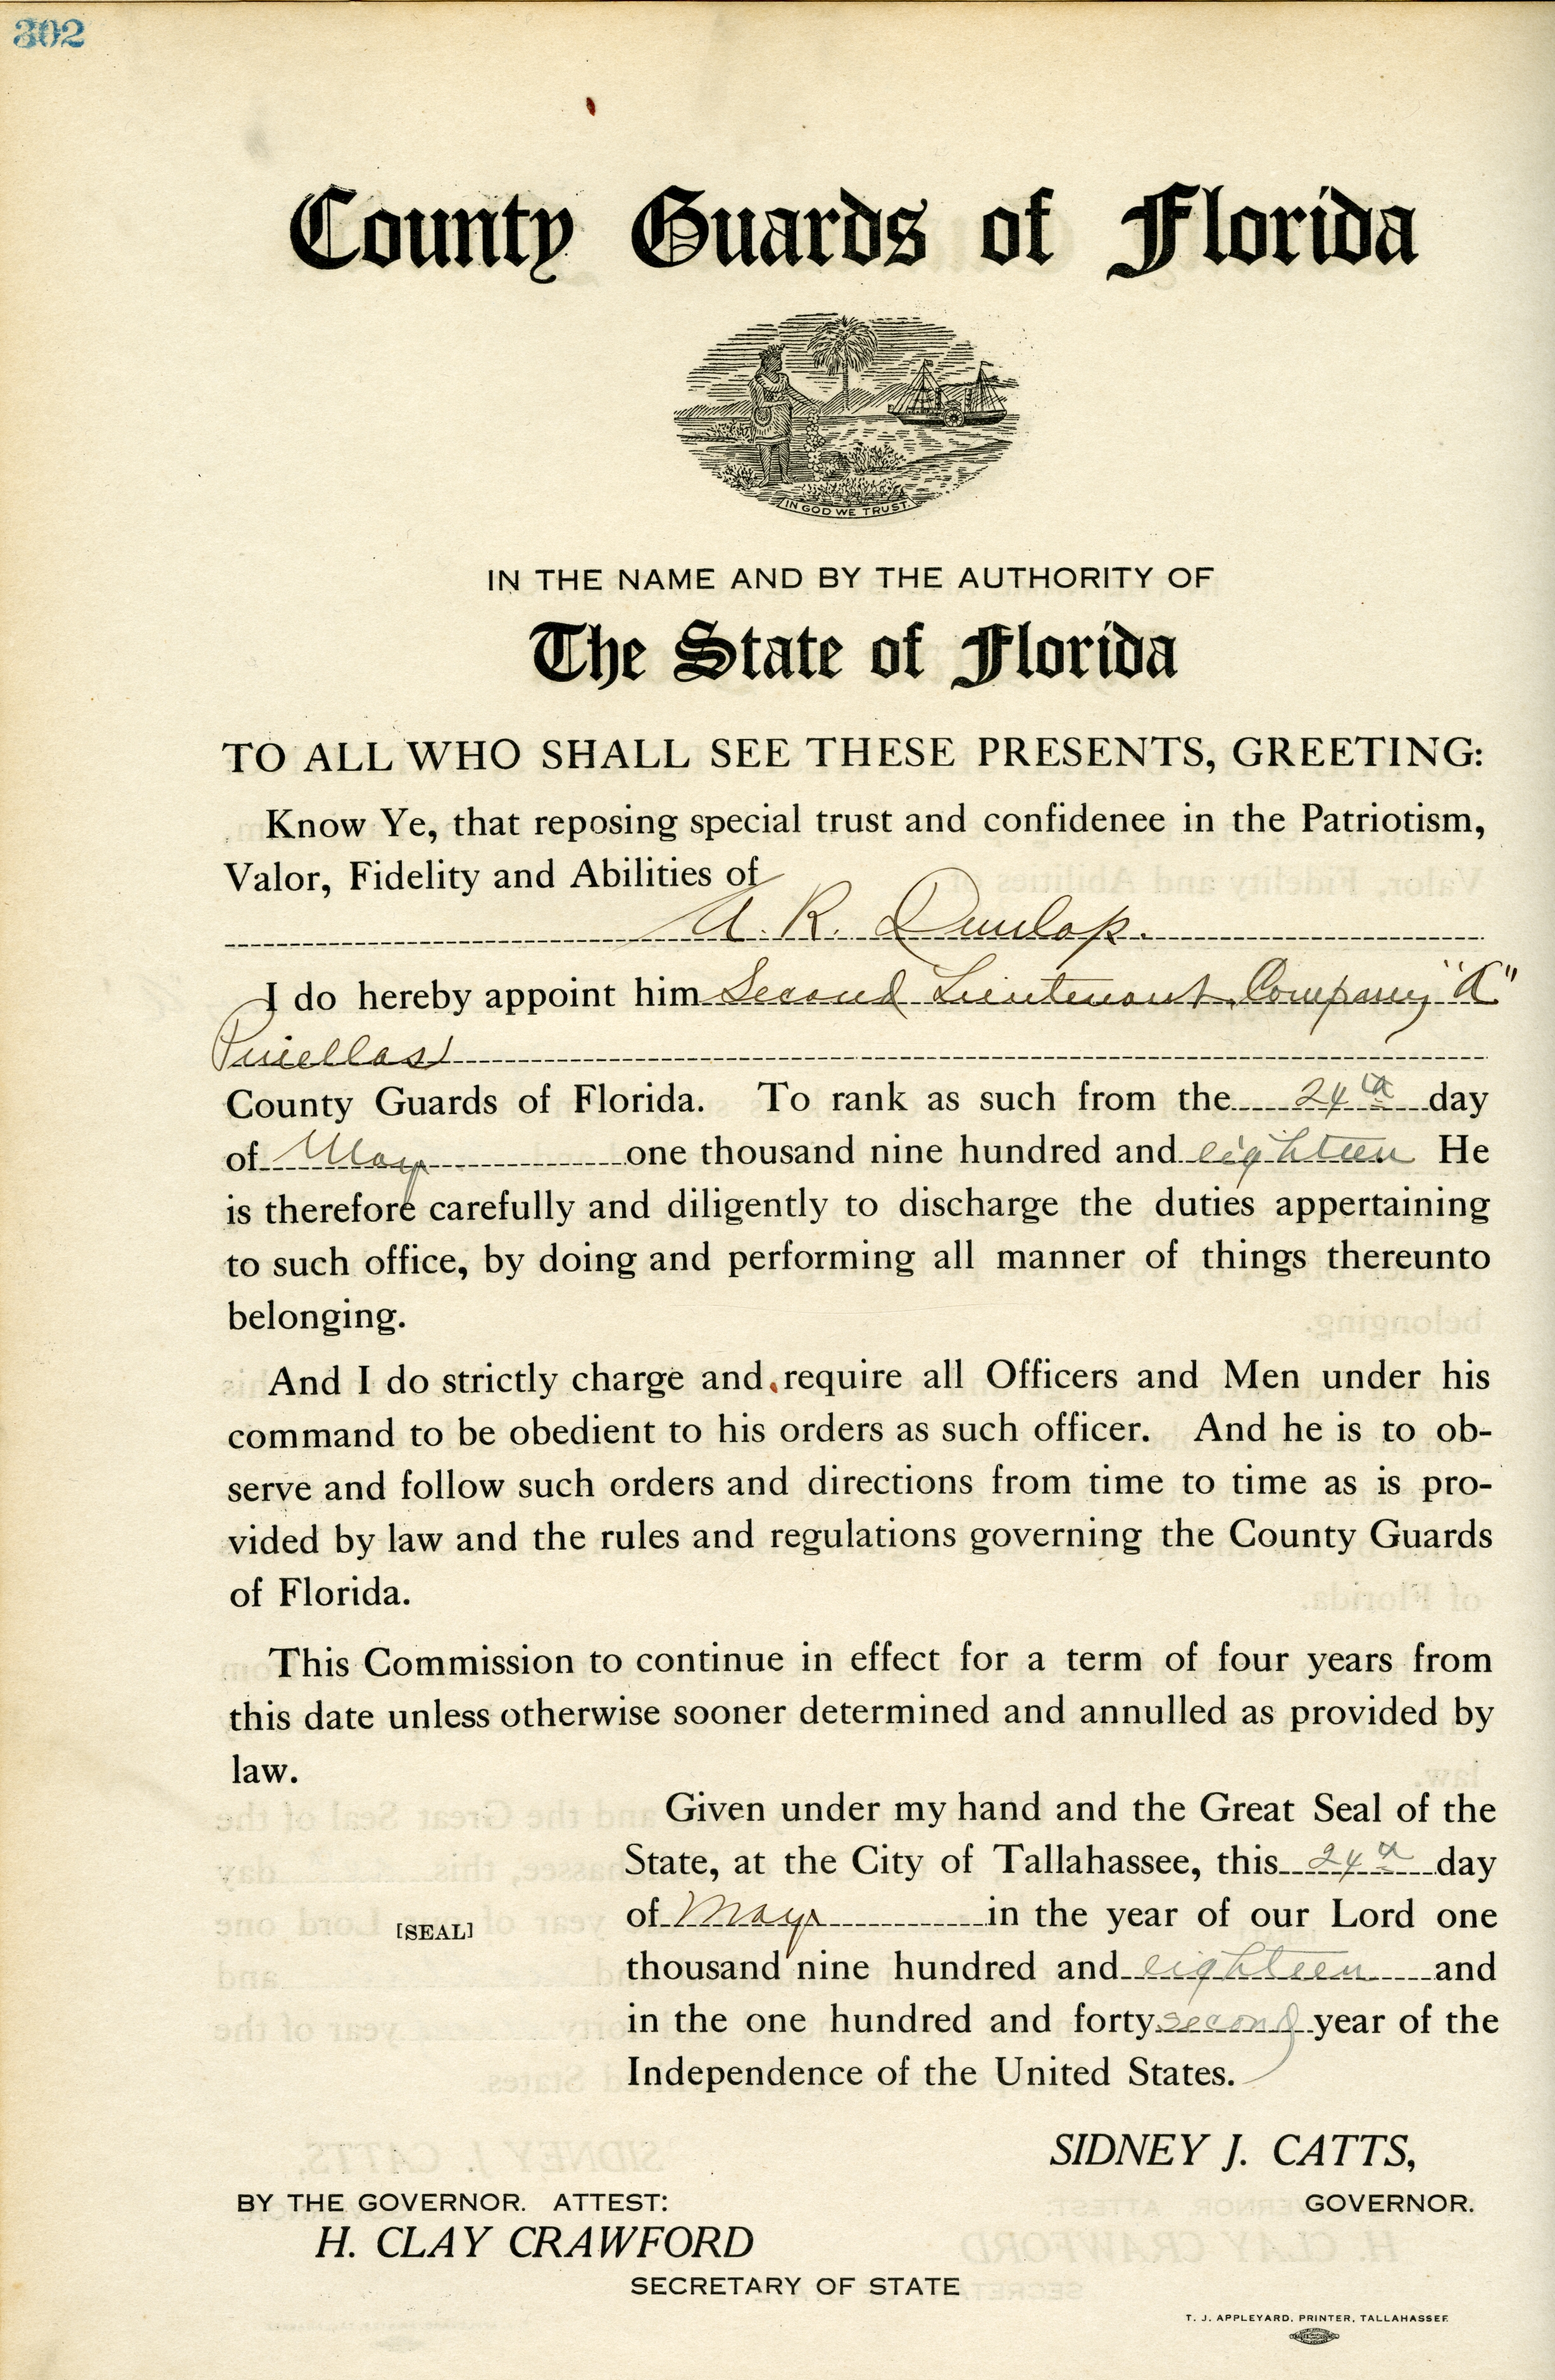 302
County Guards of Florida
IN GOD WE TRUST.
IN THE NAME AND BY THE AUTHORITY OF
The State of Florida
TO ALL WHO SHALL SEE THESE PRESENTS, GREETING:
Know Ye, that reposing special trust and confidenee in the Patriotism,
Valor, Fidelity and Abilities of
A. R. Dunlop.
I do hereby appoint him Second Lieutenant, Company "A"
Pinellas
County Guards of Florida. To rank as such from the 24th day
of May one thousand nine hundred and eighteen He
is therefore carefully and diligently to discharge the duties appertaining
to such office, by doing and performing all manner of things thereunto
belonging.
And I do strictly charge and require all Officers and Men under his
command to be obedient to his orders as such officer. And he is to ob-
serve and follow such orders and directions from time to time as is pro-
vided by law and the rules and regulations governing the County Guards
of Florida.
This Commission to continue in effect for a term of four years from
this date unless otherwise sooner determined and annulled as provided by
law.
Given under my hand and the Great Seal of the
State, at the City of Tallahassee, this 24th day
of May in the year of our Lord one
[SEAL]
thousand nine hundred and eighteen and
in the one hundred and forty second year of the
Independence of the United States.
SIDNEY J. CATTS,
BY THE GOVERNOR. ATTEST: GOVERNOR.
H. CLAY CRAWFORD
SECRETARY OF STATE
T. J. APPLEYARD, PRINTER, TALLAHASSEE